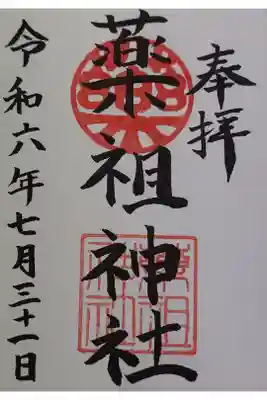 奉拝
薬祖神社
令和六年七月三十一日